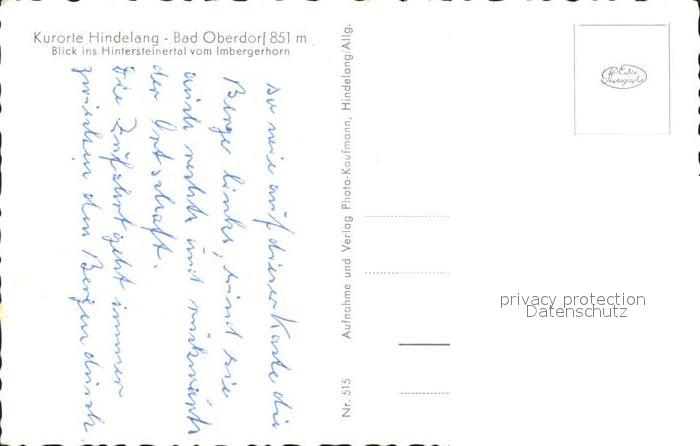 Kurorte Hindelang - Bad Oberdorf 851 m
Blick ins Hintersteinertal vom Imbergerhorn
so wie auf dieser Karte die
Berge links, sind sie
auch rechts und rückwärts
der Ortschaft.
Die Zufahrt geht immer
zwischen den Bergen durch
Nr. 515 Aufnahme und Verlag Photo-Kaufmann, Hindelang/Allg.
privacy protection
Datenschutz